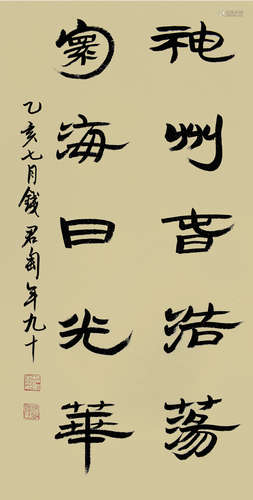 神州旾浩蕩
寰海日光華
乙亥七月錢君匋年九十